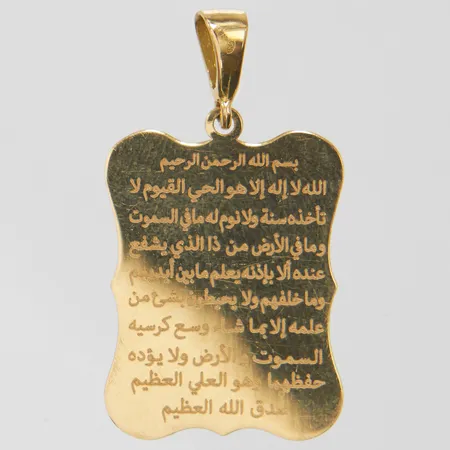 بسم الله الرحمن الرحيم
الله لا إله إلا هو الحي القيوم لا
تأخذه سنة ولا نوم له ما في السموت
وما في الأرض من ذا الذي يشفع
عنده ألا بإذنه يعلم ما بين أيديهم
وما خلفهم ولا يحيطون بشئ من
علمه إلا بما شاء وسع كرسيه
السموت والأرض ولا يؤده
حفظهما وهو العلي العظيم
صدق الله العظيم